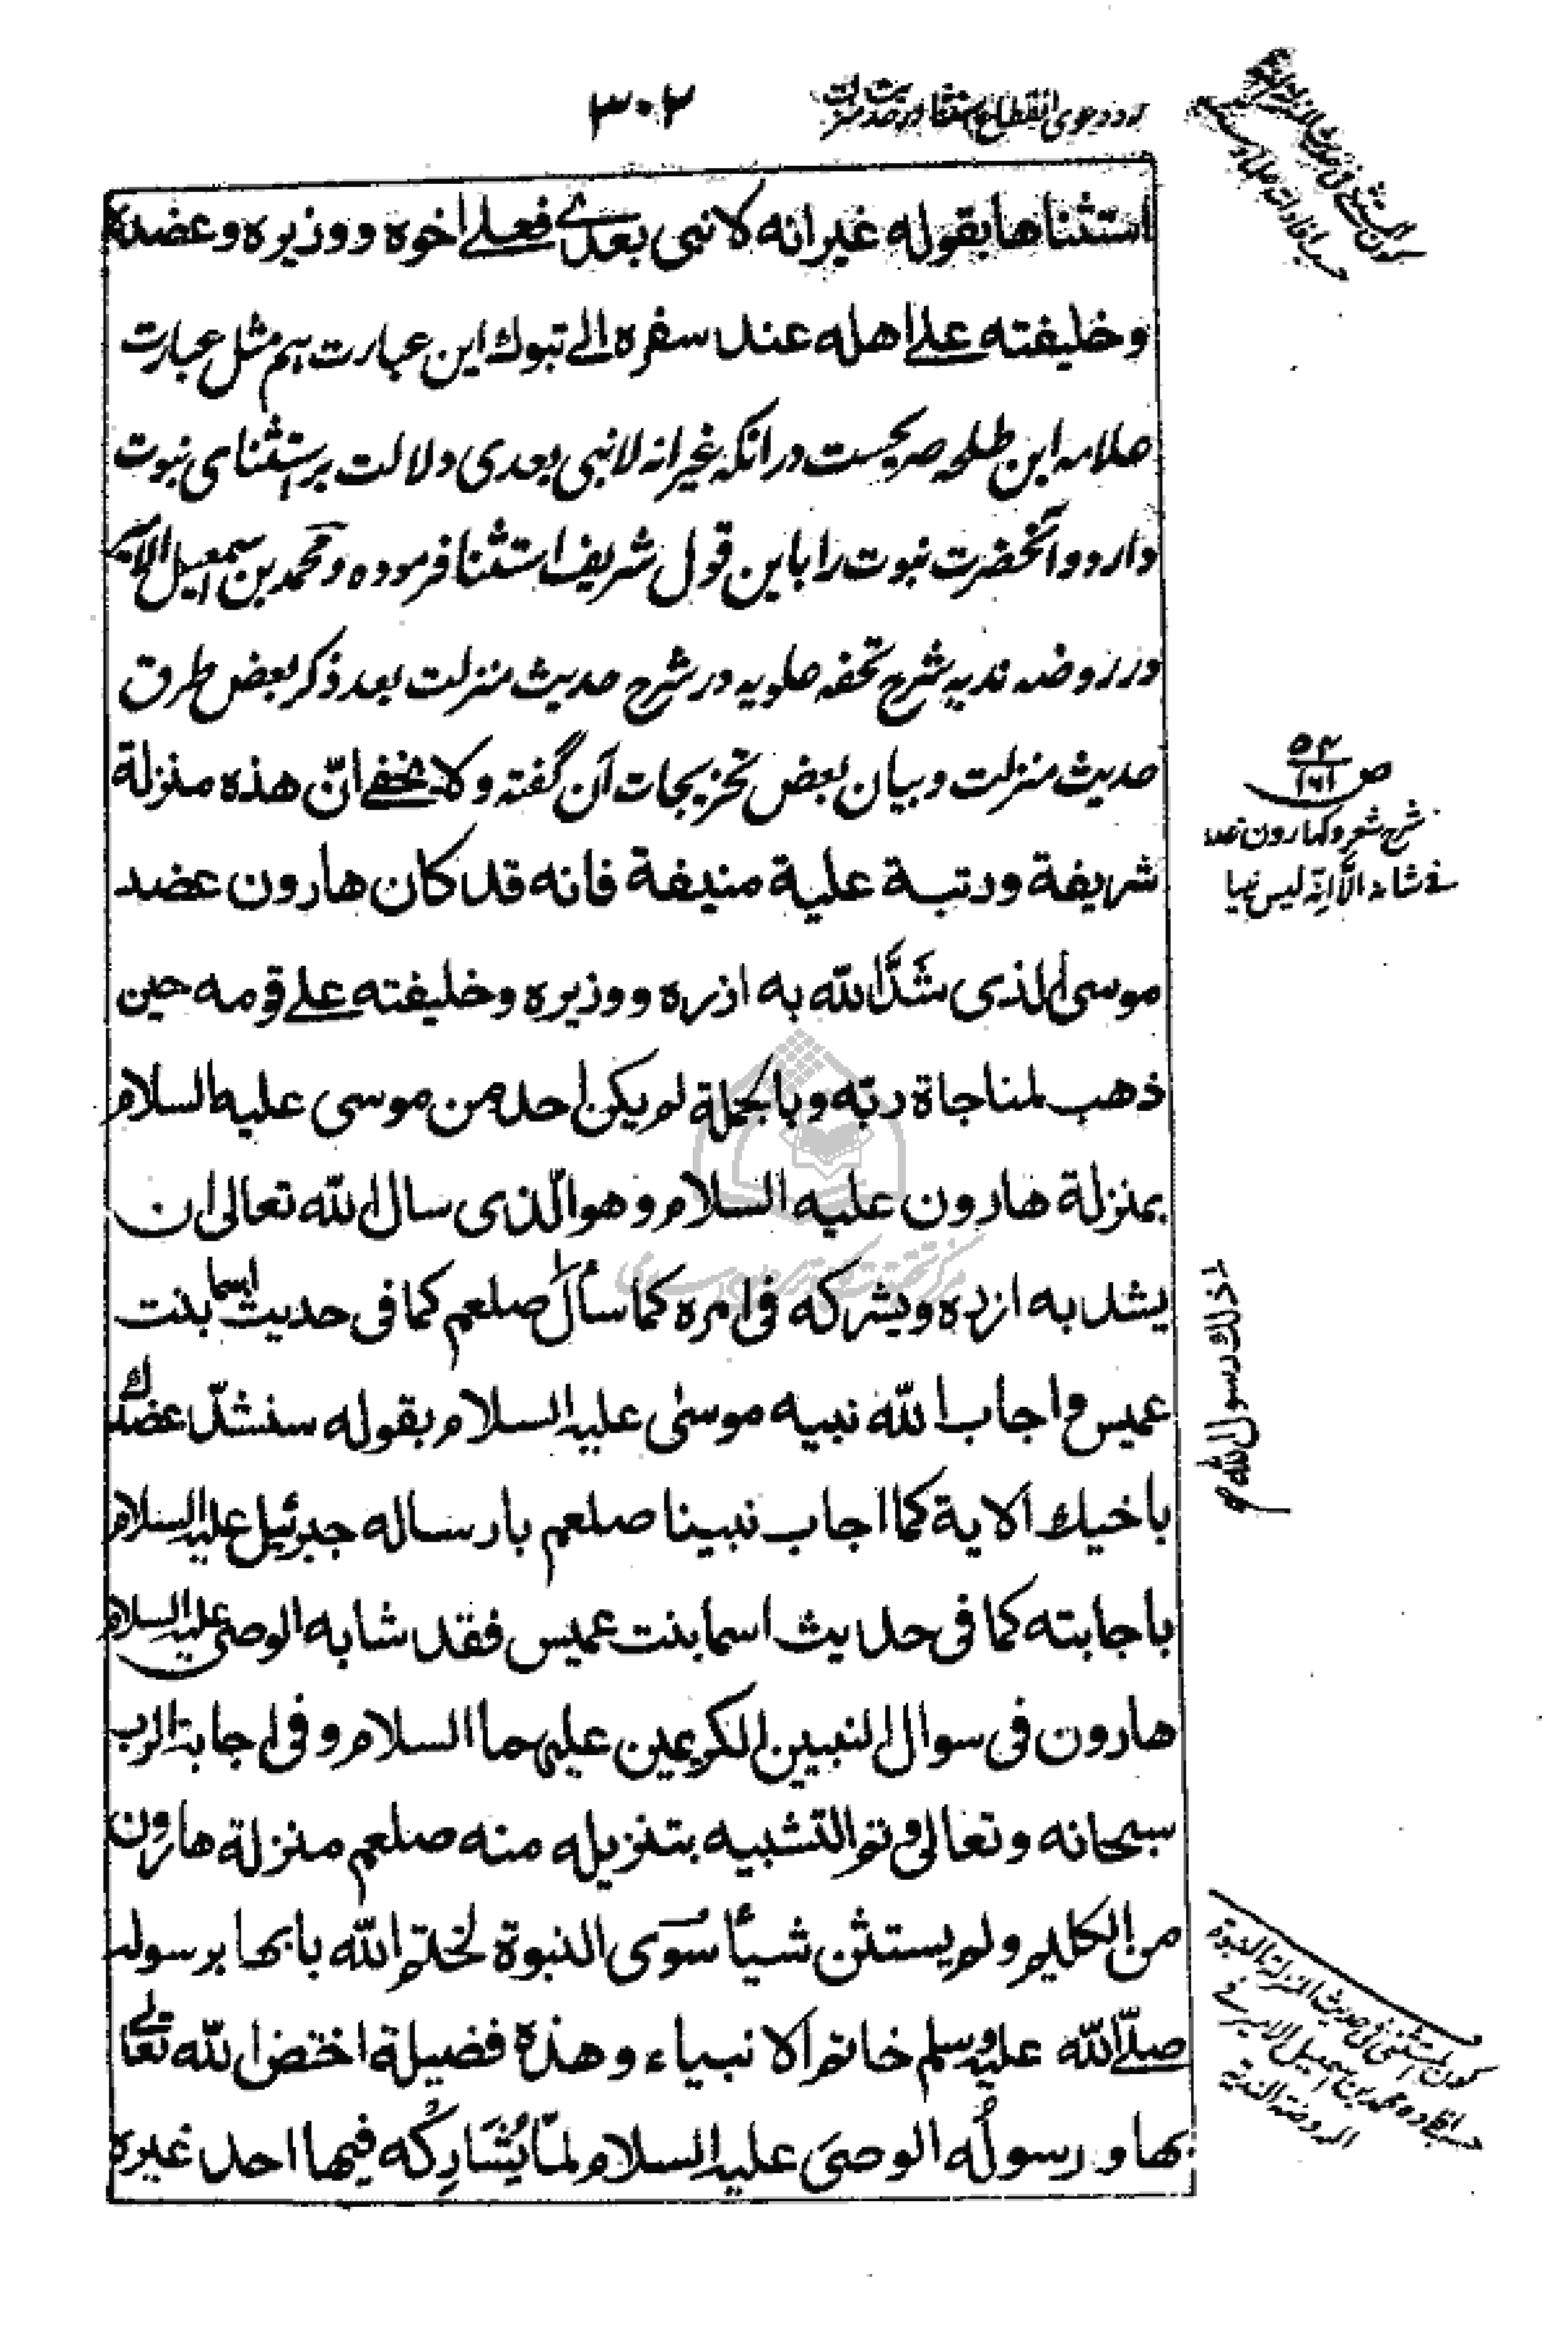 رد دعوی انقطاع استثنا در حدیث منزلت
۳۰۲
استثناها بقوله غیر انه لا نبی بعدی فعلی اخوه و وزیره و عضده
و خلیفته علی اهله عند سفره الی تبوك این عبارت هم مثل عبارت
علامه ابن طلحه صریحست در انکه غیر انه لا نبی بعدی دلالت بر استثنای نبوت
دارد و آنحضرت نبوت را باین قول شریف استثنا فرموده و محمد بن اسمعیل الامیر
در روضه ندیه شرح تحفه علویه در شرح حدیث منزلت بعد ذکر بعض طرق
حدیث منزلت و بیان بعض تخریجات آن گفته و لا یخفی انّ هذه منزلة
شریفة و رتبة علیة منیفة فانه قد کان هارون عضد
موسی الذی شَدَّ الله به ازره و وزیره و خلیفته علی قومه حین
ذهب لمناجاة ربّه و بالجملة لم یکن احد من موسی علیه السلام
بمنزلة هارون علیه السلام و هو الّذی سال الله تعالی ان
یشد به ازره و یشرکه فی امره کما سأل صلعم کما فی حدیث اسما بنت
عمیس و اجاب الله نبیه موسیٰ علیه السلام بقوله سنشدّ عضدك
باخیك الایة کما اجاب نبینا صلعم بارساله جبرئیل علیه السلام
باجابته کما فی حدیث اسما بنت عمیس فقد شابه الوصی علیه السلام
هارون فی سوال النبیین الکریمین علیهما السلام و فی اجابة الرب
سبحانه و تعالی و تم التشبیه بتنزیله منه صلعم منزلة هارون
من الکلیم و لم یستثن شیأ سوی النبوة لختم الله بابها برسوله
صلّی الله علیه و سلم خاتم الانبیاء و هذه فضیلة اختص الله تعالی
بها و رسولُه الوصیَ علیه السلام لمّا یُشَارِکُه فیها احد غیره
ص ۵۴/۱۶۱
شرح شعر و کهارون غدا
فی شانه الّا انّه لیس نبیا
ذلك رسول الله
کون المستثنی فی حدیث المنزلة النبوة
حسب افاده محمد بن اسمعیل الامیر فی
الروضة الندیة